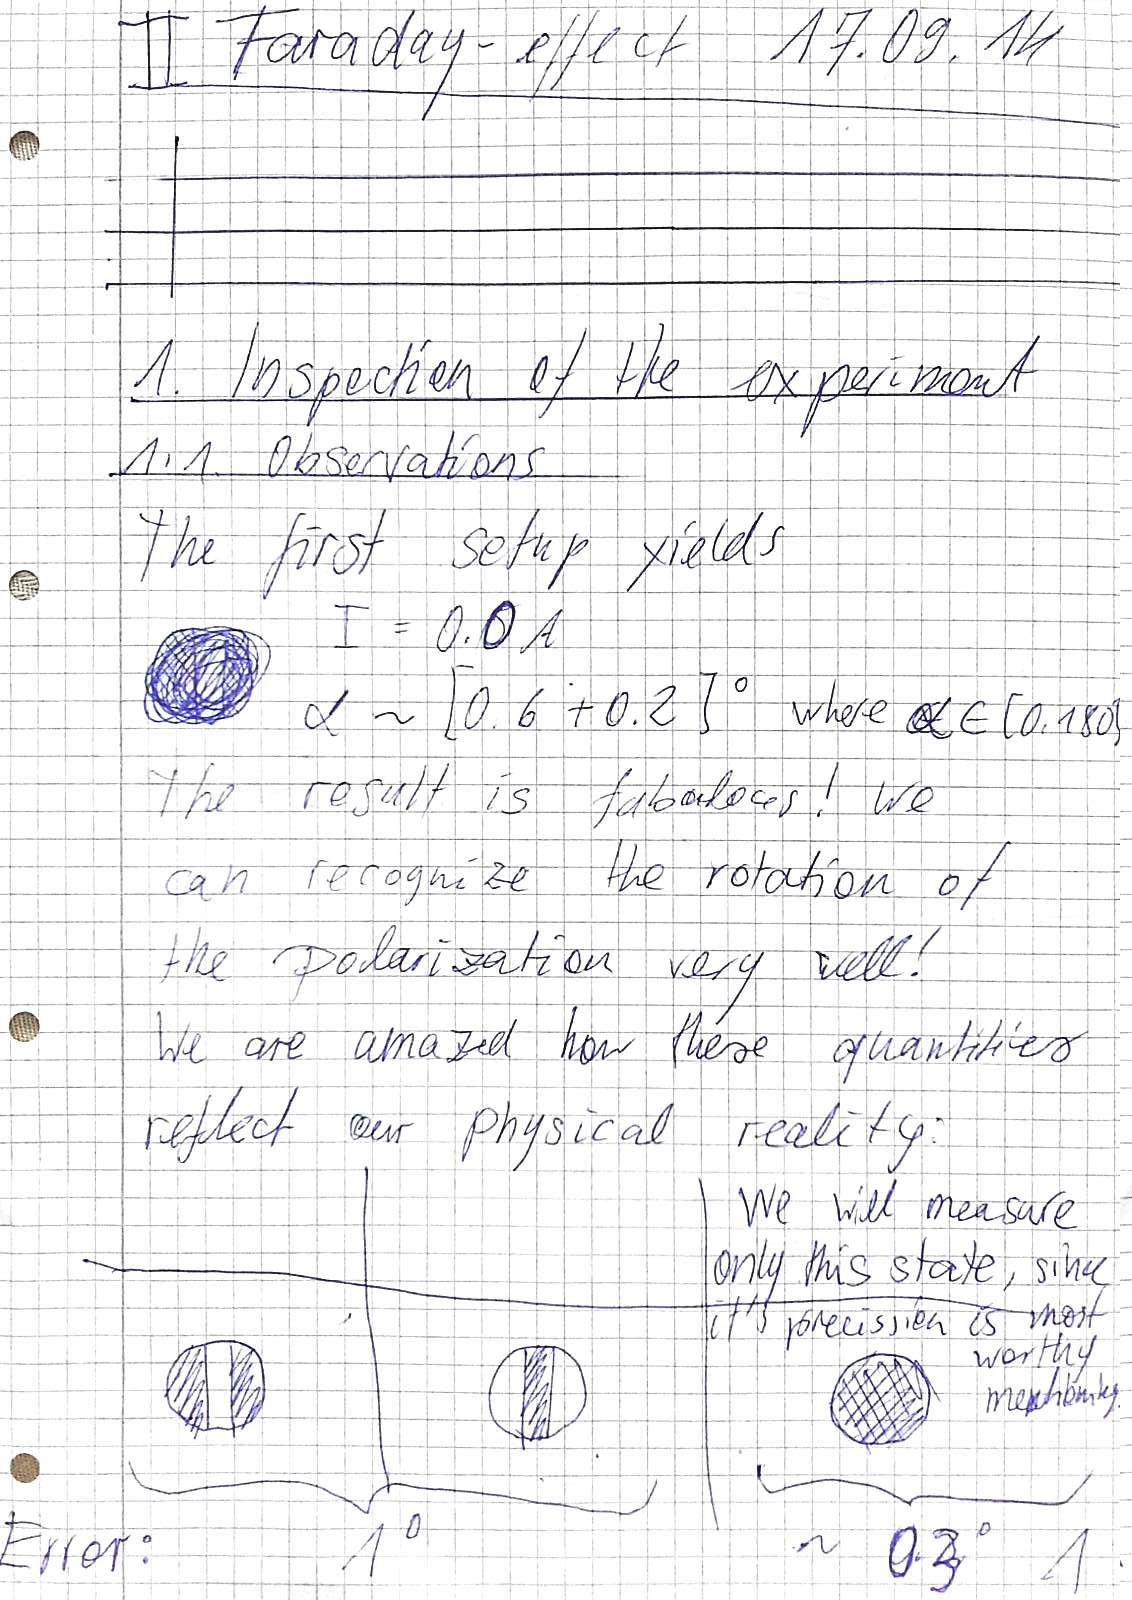 II Faraday-effect 17.09.14
1. Inspection of the experiment
1.1. Observations
The first setup yields
I = 0.0 A
α ~ [0.6 + 0.2]° where α ∈ [0.180]
The result is fabulous! We
can recognize the rotation of
the polarization very well!
We are amazed how these quantities
reflect our physical reality:
We will measure
only this state, since
it's precission is most
worthy
mentioning.
Error: 1° ~ 0.3° 1